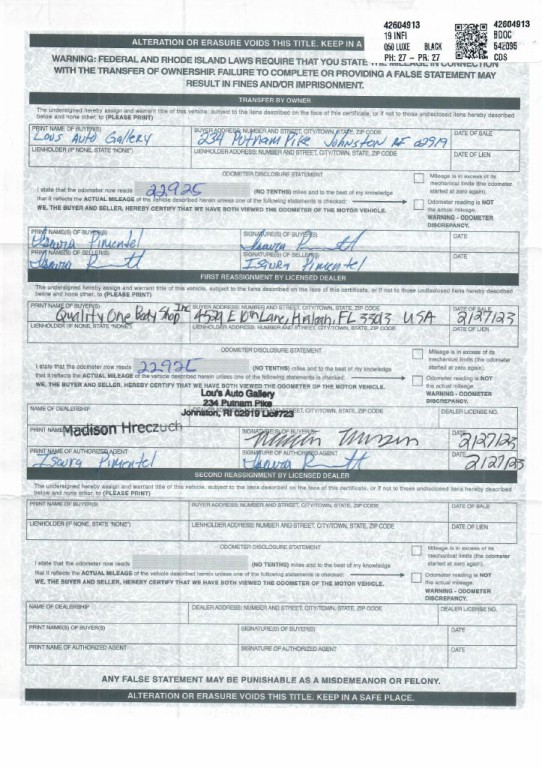 42604913
19 INFI
Q50 LUXE BLACK
PH: 27 - PR: 27
42604913
BDOC
542095
CDS
ALTERATION OR ERASURE VOIDS THIS TITLE. KEEP IN A
WARNING: FEDERAL AND RHODE ISLAND LAWS REQUIRE THAT YOU STATE THE MILEAGE IN CONNECTION
WITH THE TRANSFER OF OWNERSHIP. FAILURE TO COMPLETE OR PROVIDING A FALSE STATEMENT MAY
RESULT IN FINES AND/OR IMPRISONMENT.
TRANSFER BY OWNER
The undersigned hereby assign and warrant title of this vehicle, subject to the liens described on the face of this certificate, or if not to those undisclosed liens hereby described
below and none other, to (PLEASE PRINT)
PRINT NAME OF BUYER(S) BUYER ADDRESS: NUMBER AND STREET, CITY/TOWN, STATE, ZIP CODE DATE OF SALE
Lous Auto Gallery 234 Putnam Pike Johnston 02919
LIENHOLDER (IF NONE, STATE "NONE") LIENHOLDER ADDRESS: NUMBER AND STREET, CITY/TOWN, STATE, ZIP CODE DATE OF LIEN
ODOMETER DISCLOSURE STATEMENT
I state that the odometer now reads 22925 (NO TENTHS) miles and to the best of my knowledge
that it reflects the ACTUAL MILEAGE of the vehicle described herein unless one of the following statements is checked:
WE, THE BUYER AND SELLER, HEREBY CERTIFY THAT WE HAVE BOTH VIEWED THE ODOMETER OF THE MOTOR VEHICLE.
Mileage is in excess of its
mechanical limits (the odometer
started at zero again).
Odometer reading is NOT
the actual mileage.
WARNING - ODOMETER
DISCREPANCY.
PRINT NAME(S) OF BUYER(S) SIGNATURE(S) OF BUYER(S) DATE
Isaura Pimentel
PRINT NAME(S) OF SELLER(S) SIGNATURE(S) OF SELLER(S) DATE
Isaura Pimentel
FIRST REASSIGNMENT BY LICENSED DEALER
The undersigned hereby assign and warrant title of this vehicle, subject to the liens described on the face of this certificate, or if not to those undisclosed liens hereby described
below and none other, to (PLEASE PRINT)
PRINT NAME OF BUYER(S) BUYER ADDRESS: NUMBER AND STREET, CITY/TOWN, STATE, ZIP CODE DATE OF SALE
Quality One Body Shop Inc 4529 E 10th Lane, Hialeah, FL 33013 USA 2/27/23
LIENHOLDER (IF NONE, STATE "NONE") LIENHOLDER ADDRESS: NUMBER AND STREET, CITY/TOWN, STATE, ZIP CODE DATE OF LIEN
ODOMETER DISCLOSURE STATEMENT
I state that the odometer now reads 22925 (NO TENTHS) miles and to the best of my knowledge
that it reflects the ACTUAL MILEAGE of the vehicle described herein unless one of the following statements is checked:
WE, THE BUYER AND SELLER, HEREBY CERTIFY THAT WE HAVE BOTH VIEWED THE ODOMETER OF THE MOTOR VEHICLE.
Mileage is in excess of its
mechanical limits (the odometer
started at zero again).
Odometer reading is NOT
the actual mileage.
WARNING - ODOMETER
DISCREPANCY.
Lou's Auto Gallery
234 Putnam Pike
Johnston, RI 02919 Lic#723
NAME OF DEALERSHIP DEALER LICENSE NO.
PRINT NAME(S) Madison Hreczuch SIGNATURE(S) OF BUYER(S) DATE 2/27/23
PRINT NAME OF AUTHORIZED AGENT SIGNATURE OF AUTHORIZED AGENT DATE
Isaura Pimentel 2/27/23
SECOND REASSIGNMENT BY LICENSED DEALER
The undersigned hereby assign and warrant title of this vehicle, subject to the liens described on the face of this certificate, or if not to those undisclosed liens hereby described
below and none other, to (PLEASE PRINT)
PRINT NAME OF BUYER(S) BUYER ADDRESS: NUMBER AND STREET, CITY/TOWN, STATE, ZIP CODE DATE OF SALE
LIENHOLDER (IF NONE, STATE "NONE") LIENHOLDER ADDRESS: NUMBER AND STREET, CITY/TOWN, STATE, ZIP CODE DATE OF LIEN
ODOMETER DISCLOSURE STATEMENT
I state that the odometer now reads (NO TENTHS) miles and to the best of my knowledge
that it reflects the ACTUAL MILEAGE of the vehicle described herein unless one of the following statements is checked:
WE, THE BUYER AND SELLER, HEREBY CERTIFY THAT WE HAVE BOTH VIEWED THE ODOMETER OF THE MOTOR VEHICLE.
Mileage is in excess of its
mechanical limits (the odometer
started at zero again).
Odometer reading is NOT
the actual mileage.
WARNING - ODOMETER
DISCREPANCY.
NAME OF DEALERSHIP DEALER ADDRESS: NUMBER AND STREET, CITY/TOWN, STATE, ZIP CODE DEALER LICENSE NO.
PRINT NAME(S) OF BUYER(S) SIGNATURE(S) OF BUYER(S) DATE
PRINT NAME OF AUTHORIZED AGENT SIGNATURE OF AUTHORIZED AGENT DATE
ANY FALSE STATEMENT MAY BE PUNISHABLE AS A MISDEMEANOR OR FELONY.
ALTERATION OR ERASURE VOIDS THIS TITLE. KEEP IN A SAFE PLACE.